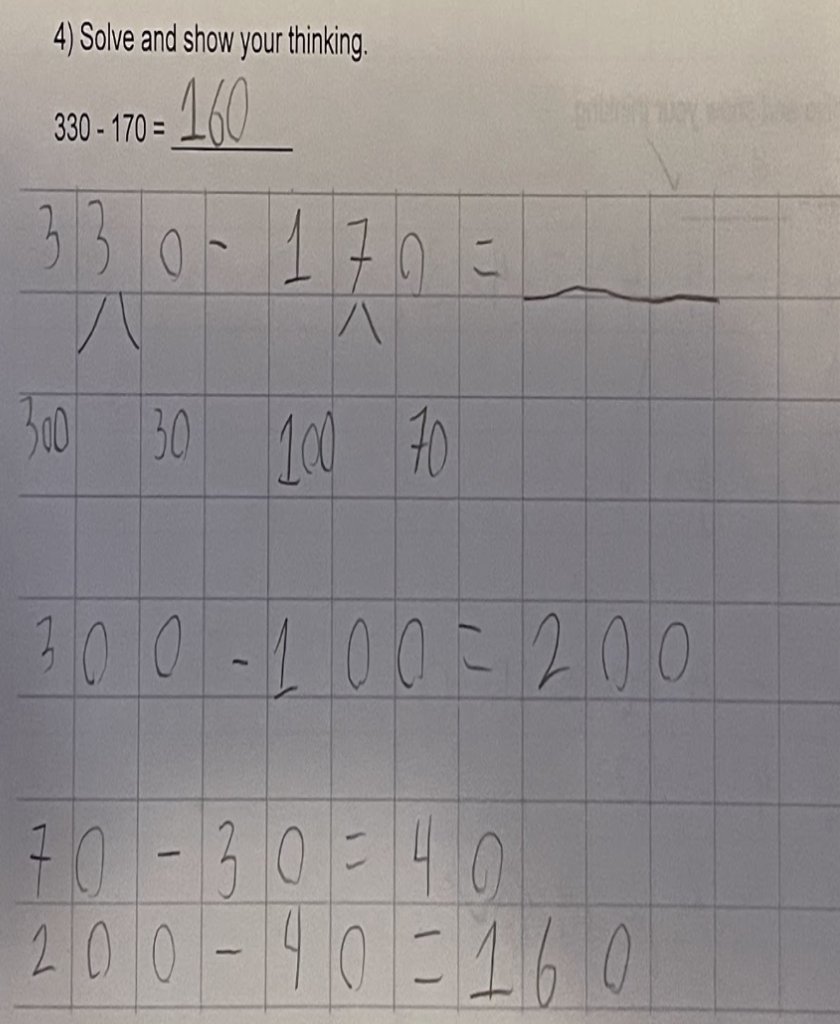 4) Solve and show your thinking.
330 - 170 = 160
330 - 170 = ___
300 30 100 70
300 - 100 = 200
70 - 30 = 40
200 - 40 = 160